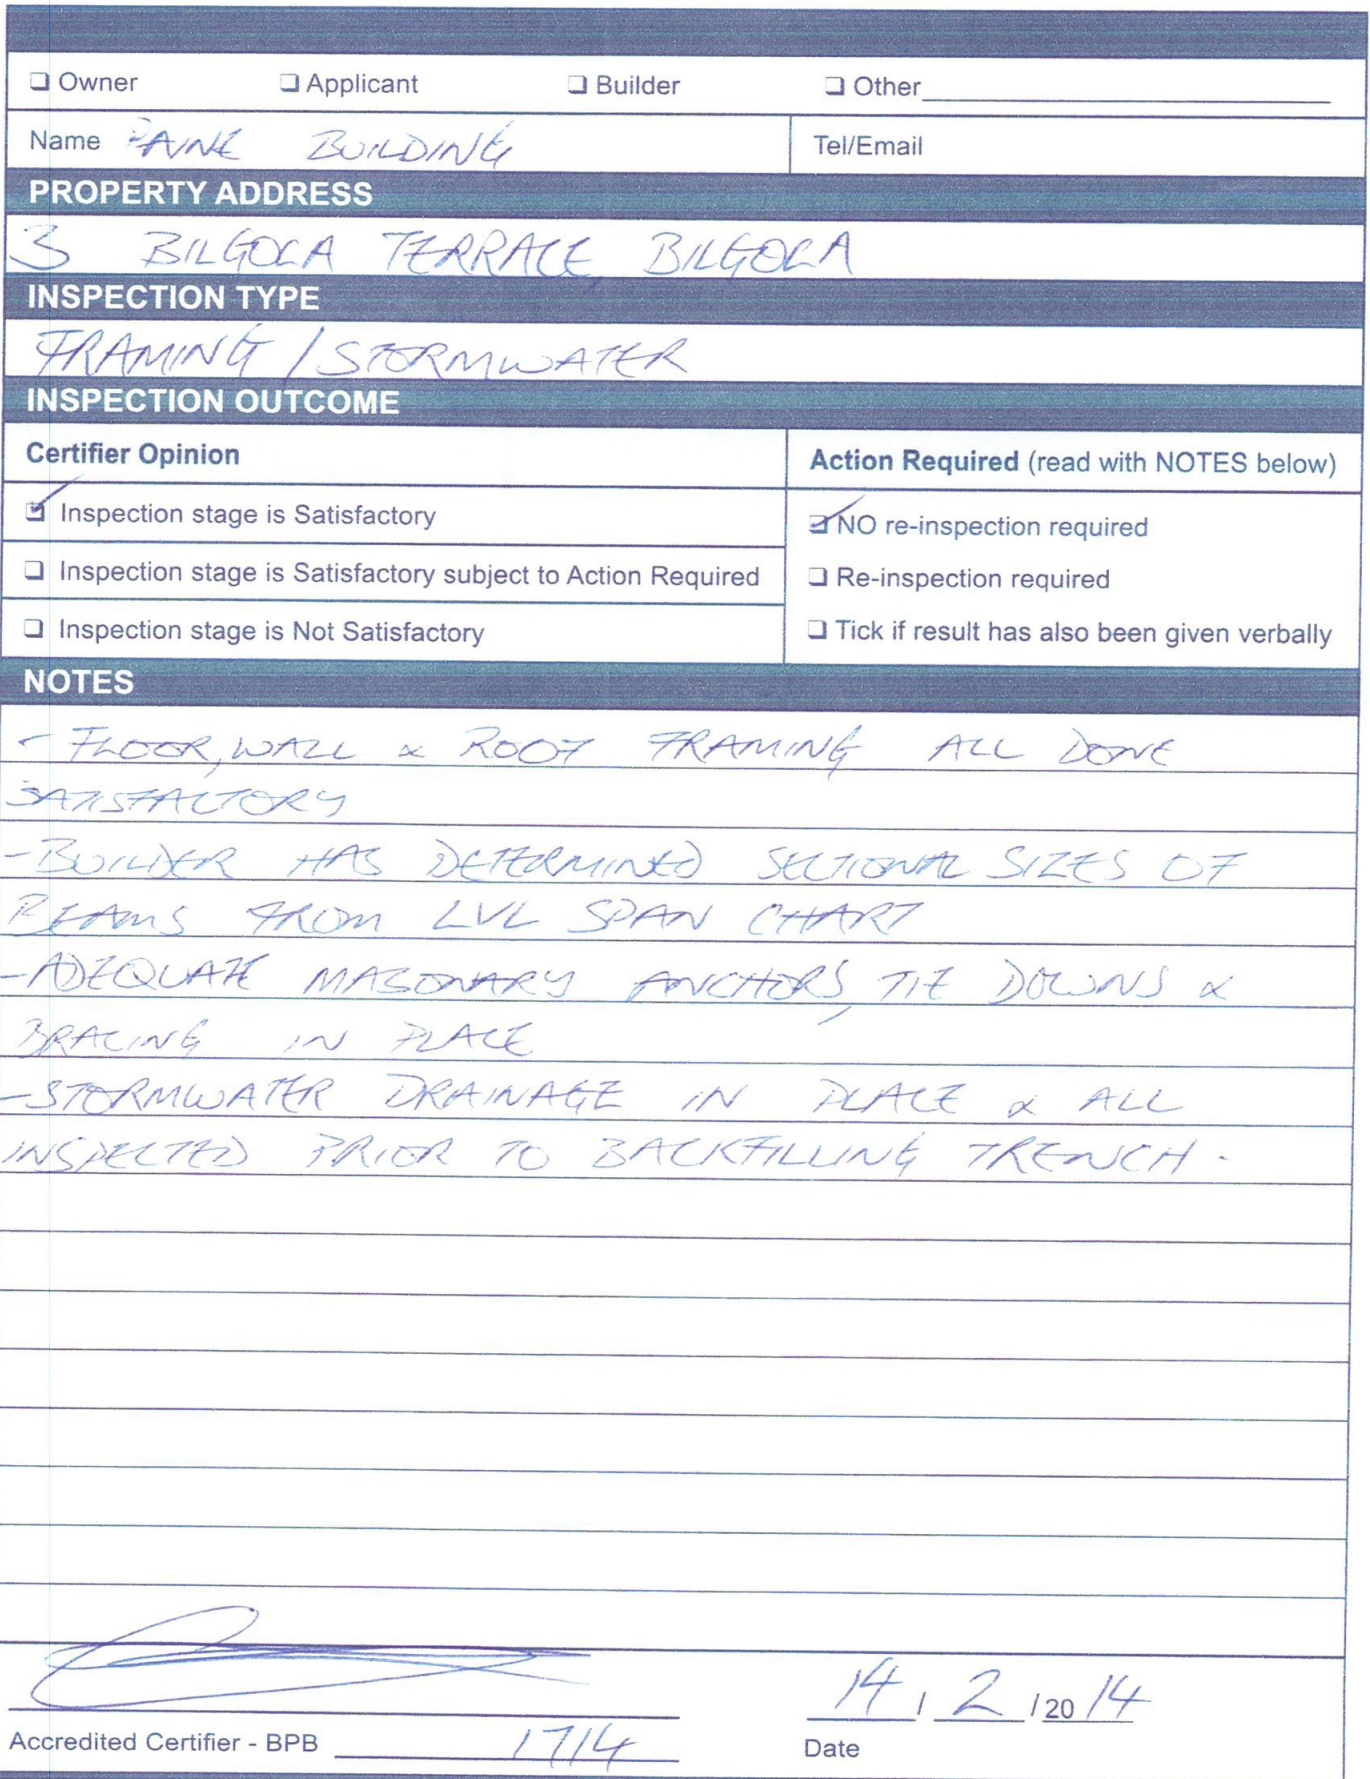 ❑ Owner ❑ Applicant ❑ Builder ❑ Other
Name PAINE BUILDING Tel/Email
PROPERTY ADDRESS
3 BILGOLA TERRACE, BILGOLA
INSPECTION TYPE
FRAMING / STORMWATER
INSPECTION OUTCOME
Certifier Opinion Action Required (read with NOTES below)
☑ Inspection stage is Satisfactory ☑ NO re-inspection required
❑ Inspection stage is Satisfactory subject to Action Required ❑ Re-inspection required
❑ Inspection stage is Not Satisfactory ❑ Tick if result has also been given verbally
NOTES
- FLOOR, WALL & ROOF FRAMING ALL DONE
SATISFACTORY
- BUILDER HAS DETERMINED SECTIONAL SIZES OF
BEAMS FROM LVL SPAN CHART
- ADEQUATE MASONARY ANCHORS, TIE DOWNS &
BRACING IN PLACE
- STORMWATER DRAINAGE IN PLACE & ALL
INSPECTED PRIOR TO BACKFILLING TRENCH.
14 / 2 / 20 14
Accredited Certifier - BPB 1714 Date